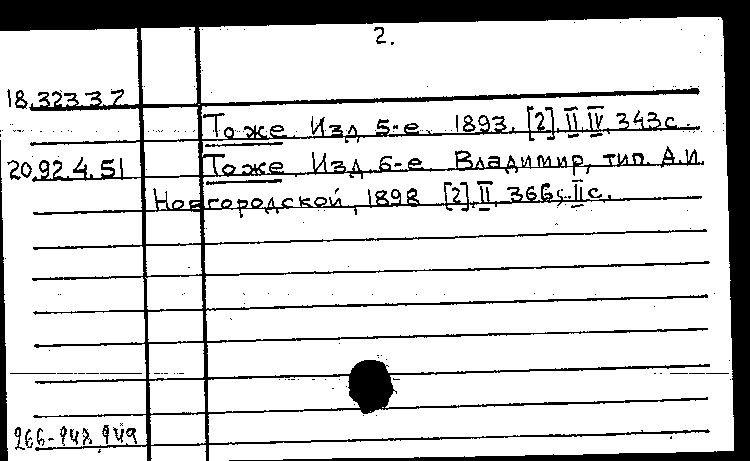 2.
18.323.3.7
Тоже Изд 5-е 1893. [2], II, IV, 343с.
20.92.4.51 Тоже Изд 6-е Владимир, тип. А.И.
Новгородской, 1898 [2], II, 366, II с.
266-948, 949